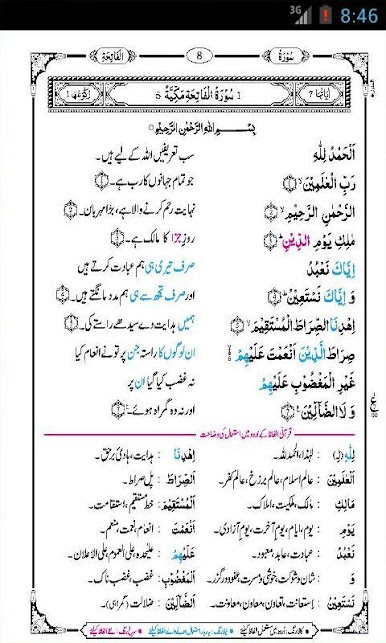 3G 8:46
سُوْرَةُ 8 اَلْفَاتِحَةِ
اٰيَاتُهَا 7 1 سُوْرَةُ الْفَاتِحَةِ مَكِّيَّةٌ 5 رُكُوْعُهَا 1
بِسْمِ اللّٰهِ الرَّحْمٰنِ الرَّحِيْمِ
اَلْحَمْدُ لِلّٰهِ سب تعریفیں اللہ کے لیے ہیں۔
رَبِّ الْعٰلَمِيْنَ جو تمام جہانوں کا رب ہے۔
الرَّحْمٰنِ الرَّحِيْمِ نہایت رحم کرنے والا ہے، بڑا مہربان۔
مٰلِكِ يَوْمِ الدِّيْنِ روزِ جزا کا مالک ہے۔
اِيَّاكَ نَعْبُدُ صرف تیری ہی ہم عبادت کرتے ہیں
وَ اِيَّاكَ نَسْتَعِيْنُ اور صرف تجھ سے ہی ہم مدد مانگتے ہیں۔
اِهْدِنَا الصِّرَاطَ الْمُسْتَقِيْمَ ہمیں ہدایت دے سیدھے راستے کی۔
صِرَاطَ الَّذِيْنَ اَنْعَمْتَ عَلَيْهِمْ ان لوگوں کا راستہ جن پر تو نے انعام کیا
غَيْرِ الْمَغْضُوْبِ عَلَيْهِمْ نہ غضب کیا گیا ان پر
وَ لَا الضَّآلِّيْنَ اور نہ وہ گمراہ ہوئے۔
قرآنی الفاظ کے اردو میں استعمال کی وضاحت
لِلّٰهِ (لِ) : لہٰذا، الحمدللہ۔ اِهْدِنَا : ہدایت، ہادی برحق۔
الْعٰلَمِيْنَ : عالم اسلام، عالم برزخ، عالم کفر۔ الصِّرَاطَ : پل صراط۔
مَالِكِ : مالک، ملکیت، املاک۔ الْمُسْتَقِيْمَ : خط مستقیم، استقامت۔
يَوْمِ : یوم، ایام، یوم آخرت، یوم آزادی۔ اَنْعَمْتَ : انعام، نعمت، منعم۔
نَعْبُدُ : عبادت، عابد، معبود۔ عَلَيْهِمْ : علیحدہ، علی العموم، علی الاعلان۔
وَ : شان و شوکت، خوشی و مسرت، عفو و درگزر۔ الْمَغْضُوْبِ : غضب، غضب ناک۔
نَسْتَعِيْنُ : استعانت، تعاون، معاون، معاونت۔ الضَّآلِّيْنَ : ضلالت (گمراہی)۔